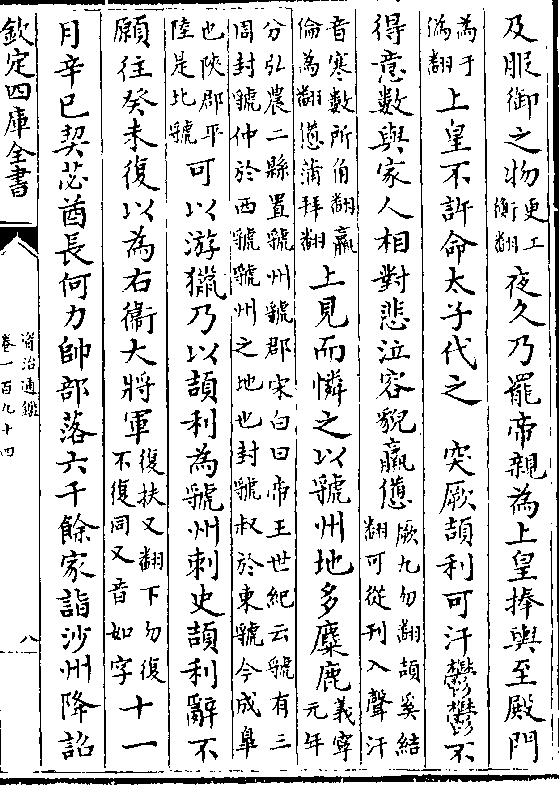 及服御之物更工衡翻夜久乃罷帝親為上皇捧輿至殿門
為于偽翻上皇不許命太子代之 突厥頡利可汗鬱鬱不
得意數與家人相對悲泣容貌羸憊厥九勿翻頡奚結翻可從刊入聲汗
音寒數所伯翻羸倫為翻憊蒲拜翻上見而憐之以虢州地多麋鹿義寧元年
分弘農二縣置虢州虢郡宋白曰帝王世紀云虢有三
周封虢仲於西虢虢州之地也封虢叔於東虢今成皋
也陜郡平陸是北虢可以游獵乃以頡利為虢州刺史頡利辭不
願往癸未復以為右衛大將軍復扶又翻下勿復不復同又音如字十一
月辛巳契苾酋長何力帥部落六千餘家詣沙州降詔
欽定四庫全書
資治通鑑
卷一百九十四
八